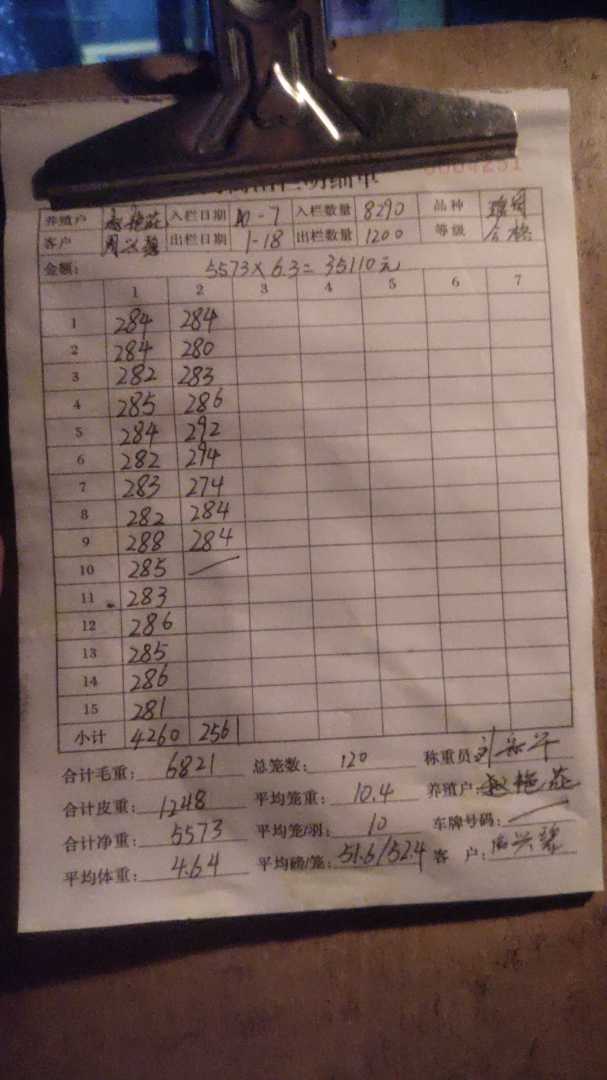 明细单 0004251
养殖户 入栏日期 10-7 入栏数量 8290 品种
客户 周兴碧 出栏日期 1-18 出栏数量 1200 等级 合格
金额: 5573×6.3=35110元
1 2 3 4 5 6 7
1 284 284
2 284 280
3 282 283
4 285 286
5 284 292
6 282 294
7 283 274
8 282 284
9 288 284
10 285
11 283
12 286
13 285
14 286
15 281
小计 4260 2561
合计毛重: 6821 总笼数: 120 称重员:
合计皮重: 1248 平均笼重: 10.4 养殖户:
合计净重: 5573 平均笼/羽: 10 车牌号码:
平均体重: 4.64 平均磅/笼: 51.6/52.4 客户: 周兴碧